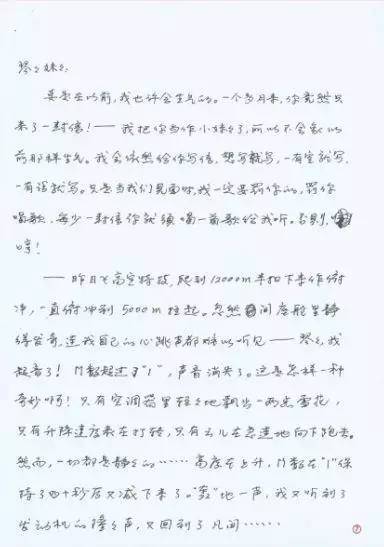 琴々妹々:
要是在以前,我也许会生气的。一个多月来,你竟然只
来了一封信!——我把你当作小妹々了,所以不会象以
前那样生气。我会依然给你写信,想写就写,一有空就写,
一有话就写。只是当我们见面时,我一定要罚你的,罚你
唱歌,每少一封信你就须唱一首歌给我听。否则,
哼!
——昨日飞高空特技,爬到12000m再扣下来作俯
冲,一直俯冲到5000m拉起。忽然间座舱里静
得出奇,连我自己的心跳声都难以听见——琴々,我
超音了!M数超过了"1",声音消失了。这是怎样一种
奇妙啊!只有空调器里轻々地飘出一两朵雪花,
只有升降速度表在打转,只有云儿在急速地向下跑去。
然而,一切都是静々的……高度在上升,M数在"1"保
持了四十秒后又减下来了。"轰"地一声,我又听到了
发动机的隆々声,又回到了凡间……